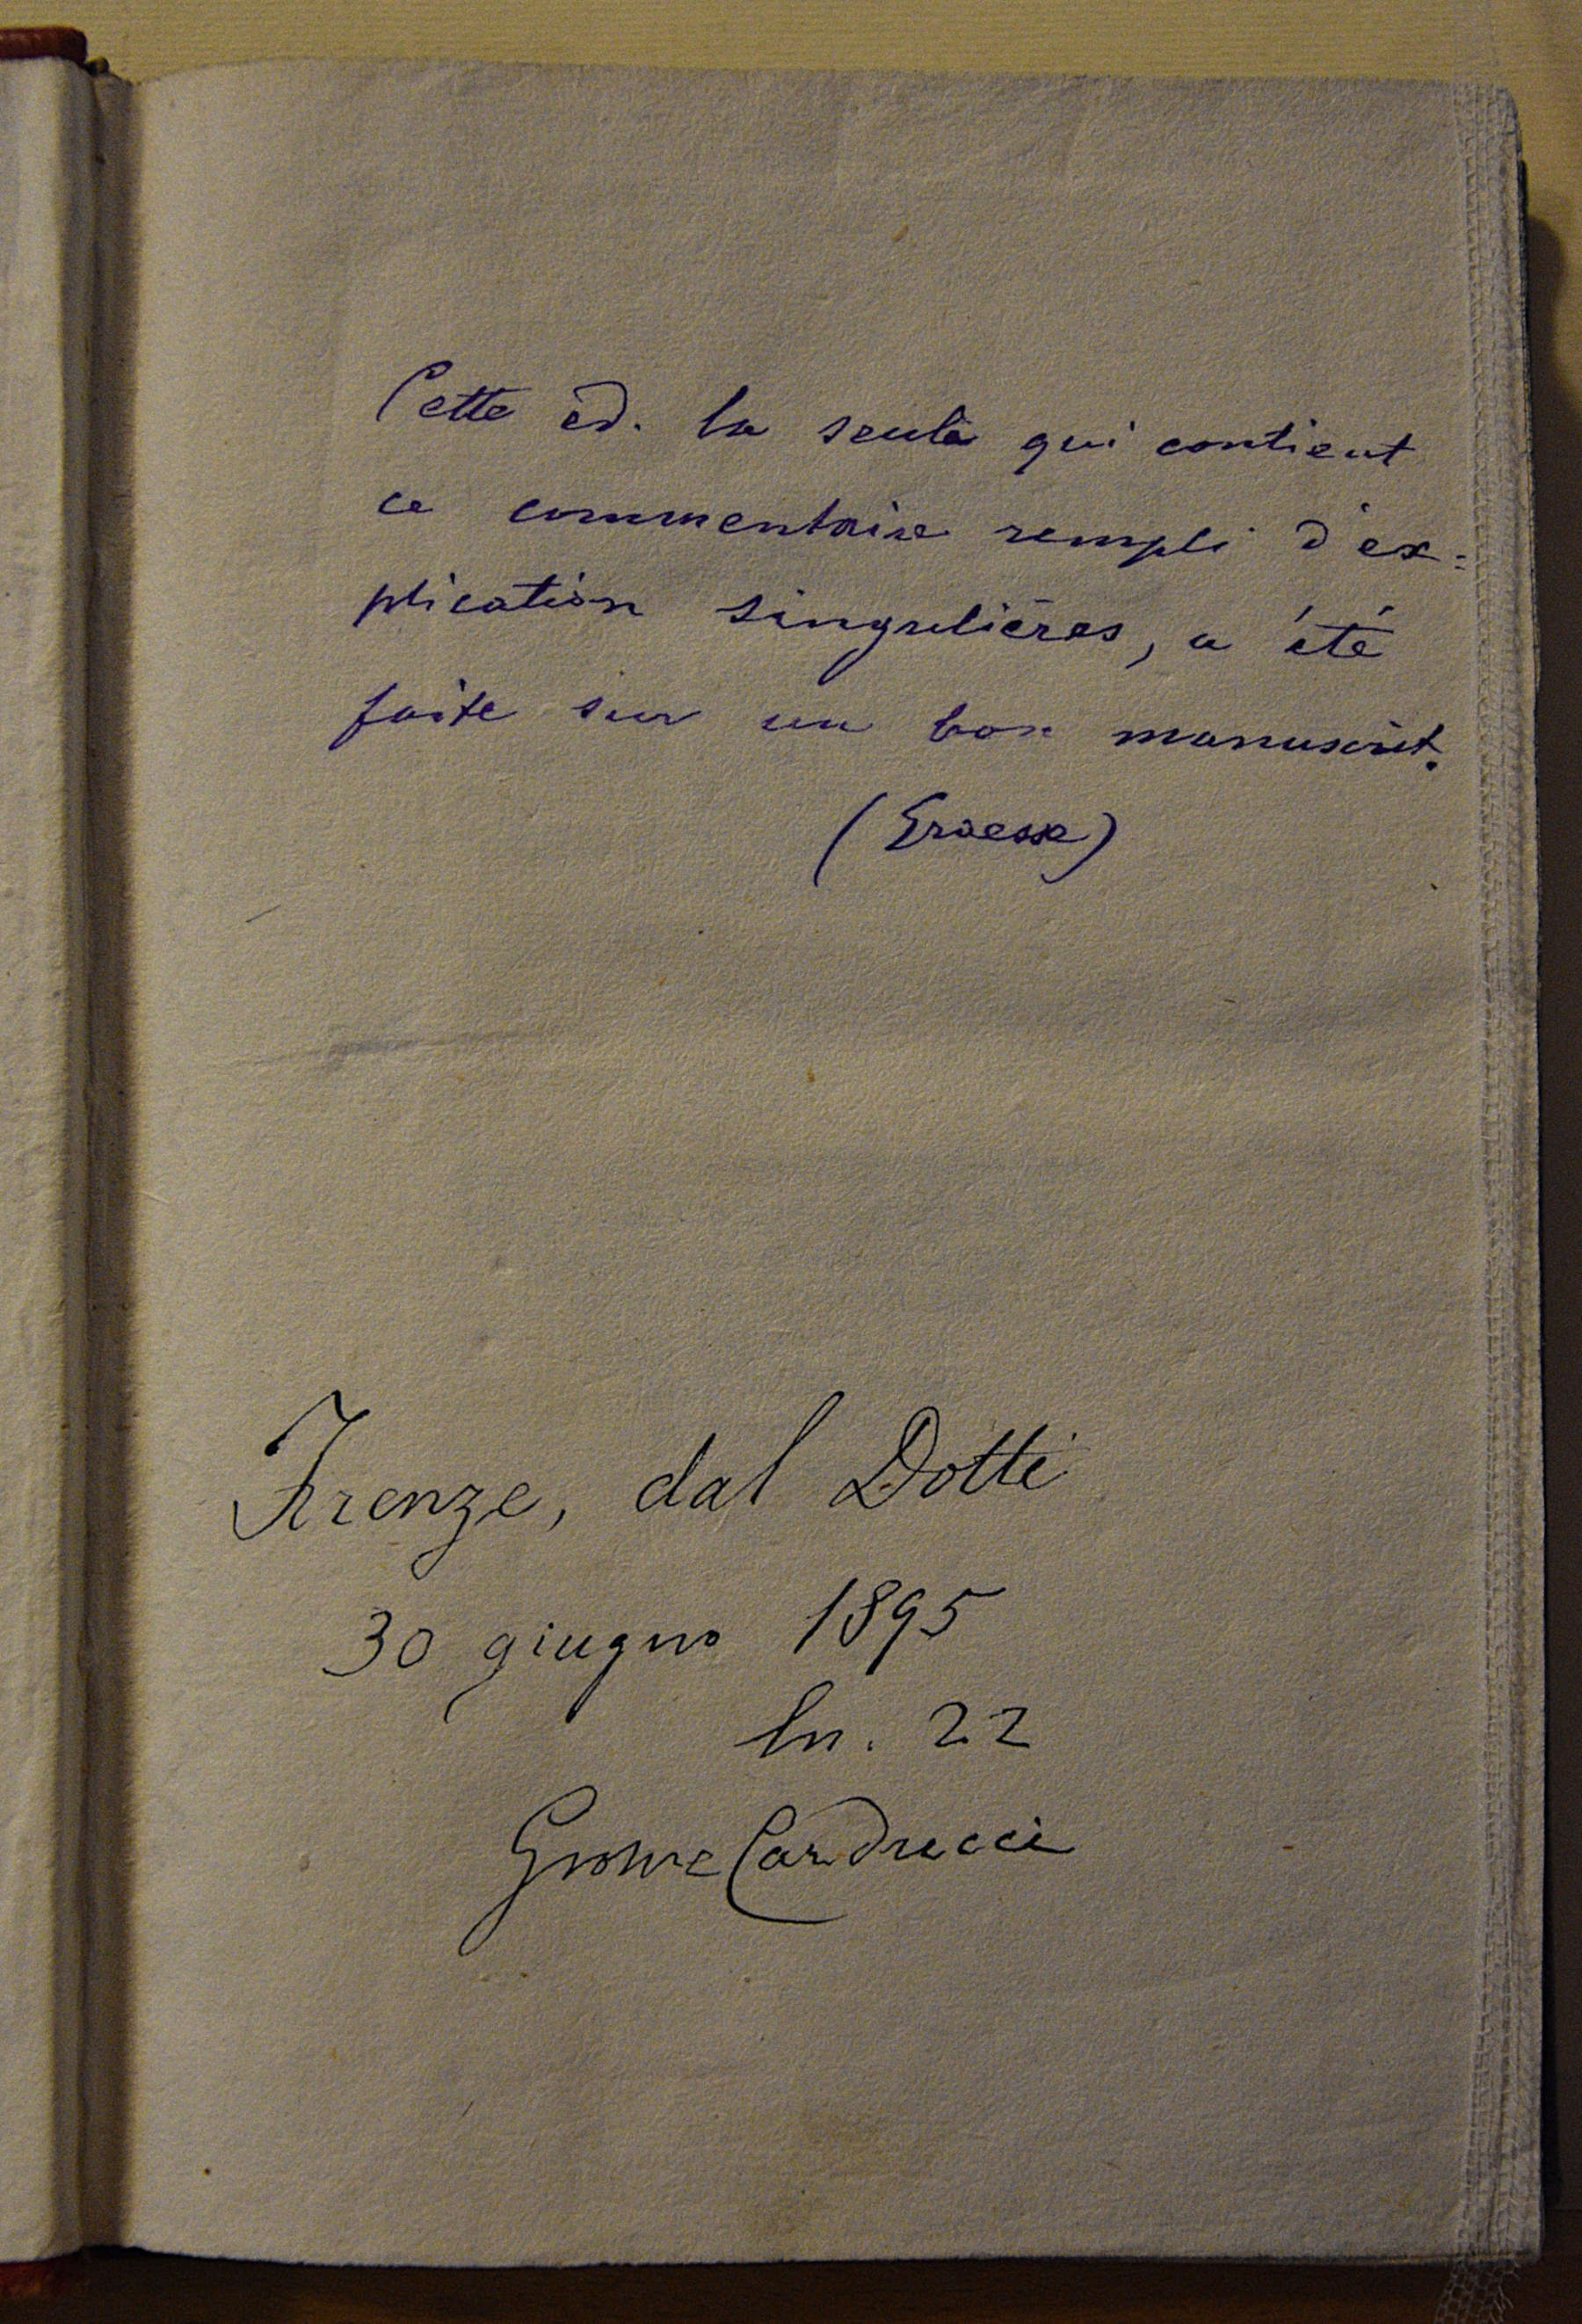 Cette éd. la seule qui contient
ce commentaire rempli d'ex=
plication singulières, a été
faite sur un bon manuscrit.
(Graesse)
Firenze, dal Dotti
30 giugno 1895
ln. 22
Giosue Carducci